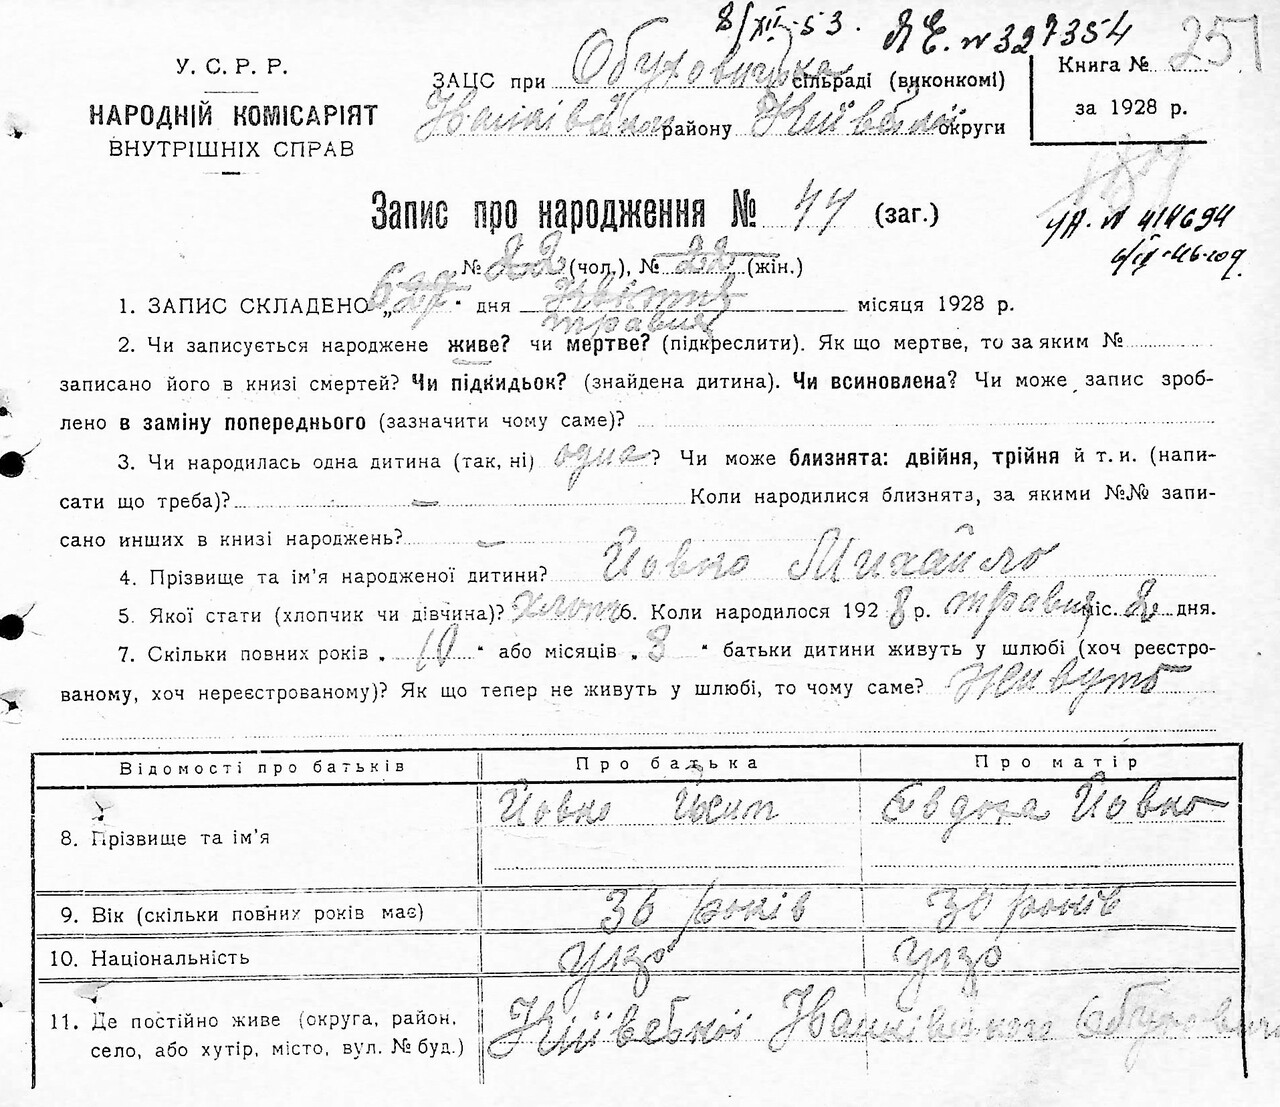 8/XII-53. ЯЕ. № 327354
251
У. С. Р. Р.
НАРОДНІЙ КОМІСАРІЯТ
ВНУТРІШНІХ СПРАВ
ЗАЦС при Обуховицька сільраді (виконкомі)
Іванківської району Київської округи
Книга №
за 1928 р.
Запис про народження № 44 (заг.)
УА. № 414694
№ 22 (чол.), № 22 (жін.)
6/IX-46 год
1. ЗАПИС СКЛАДЕНО „6 27“ дня квітня місяця 1928 р.
травня
2. Чи записується народжене живе? чи мертве? (підкреслити). Як що мертве, то за яким №
записано його в книзі смертей? Чи підкидьок? (знайдена дитина). Чи всиновлена? Чи може запис зроб-
лено в заміну попереднього (зазначити чому саме)?
3. Чи народилась одна дитина (так, ні) одна? Чи може близнята: двійня, трійня й т. и. (напи-
сати що треба)? — Коли народилися близнята, за якими №№ запи-
сано инших в книзі народжень? —
4. Прізвище та ім’я народженої дитини? Йовко Михайло
5. Якої стати (хлопчик чи дівчина)? хлопч 6. Коли народилося 1928 р. травня міс. 2 дня.
7. Скільки повних років „10“ або місяців „3“ батьки дитини живуть у шлюбі (хоч реєстро-
ваному, хоч нереєстрованому)? Як що тепер не живуть у шлюбі, то чому саме? живуть
Відомості про батьків Про батька Про матір
8. Прізвище та ім’я Йовко Йосип Євдоха Йовко
9. Вік (скільки повних років має) 36 років 30 років
10. Національність укр укр
11. Де постійно живе (округа, район,
село, або хутір, місто, вул. № буд.) Київської Іванківського Обухович